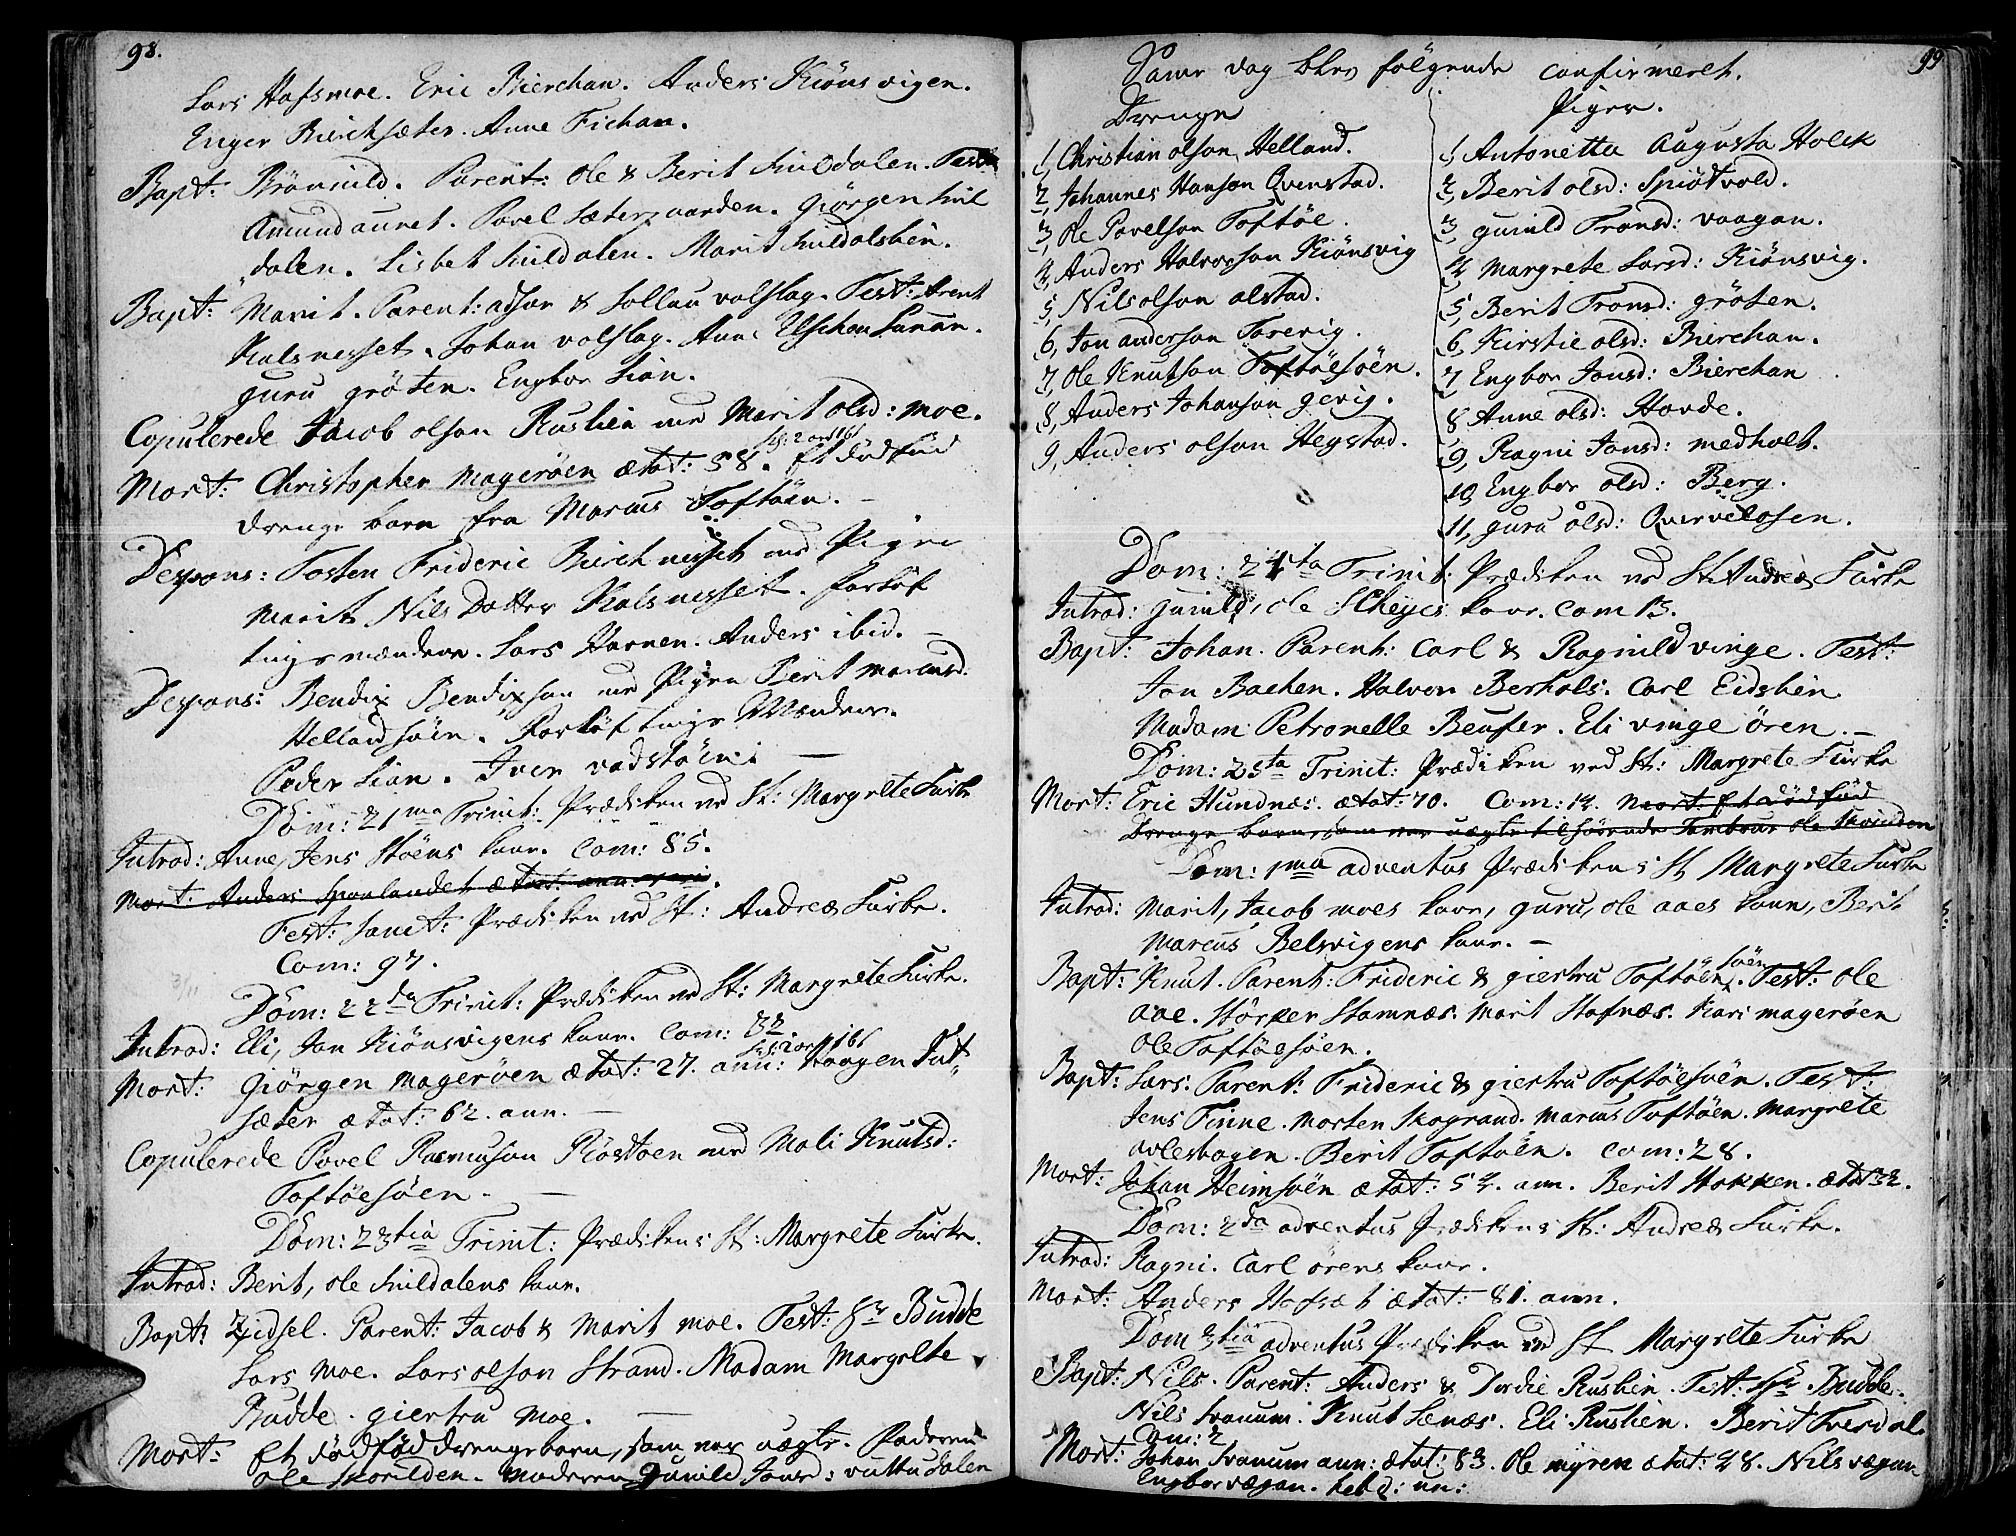 98.
Lars Hafsmoe. Eric Bierchan. Anders Kiönsvigen.
Enger Birchsæter. Anne Fichan.
Bapt: Brönnild. Parent: Ole & Berit Snildalen. Test:
Amund aunet. Povel Sætersgaarden. Giörgen Snil
dalen. Lisbet Snildalen. Marit Snildalslien.
Bapt: Marit. Parent: adser & Sollau valslag. Test: Arent
Kalsnesset. Johan valslag. Anne Elschen Sanan.
guru gröten. Engbor Lian.
Copulerede Jacob olson Rustien med Marit olsd: moe.
Mort: Christopher Magerøen ætat: 58. Et dödfød
drenge barn fra Marcus Toftøen.
Despons: Tosten Frideric Birchnesset med Pigen
Marit Nils Datter Kalsnesset. forlöf
tings mændene. Lars Harnen. Anders ibid.
Despons: Bendix Bendixson med Pigen Berit marcusd:
Hellandsøen. Forlöftings Mændene.
Peder Lian. Iver vadstøen.
Dom: 21ma Trinit: Prædiken ved St: Margrete Kirke
Introd: Anne, Jens Støens kone. Com: 85.
Mort: Anders
Fest: Sanct: Prædiken ved St: Andreæ Kirke.
Com: 97.
Dom: 22da Trinit: Prædiken ved St: Margrete Kirke.
Introd: Eli, Jon Kiönsvigens kone. Com: 32.
Mort: Giörgen Magerøen ætat: 27. ann: Haagen Tut
sæter ætat: 62. ann.
Copulerede Povel Rasmuson Röstøen med Mali Knutsd:
Toftøesøen.
Dom: 23tia Trinit: Prædiken i St: Margrete Kirke.
Introd: Berit, ole Snildalens kone.
Bapt: Zidsel. Parent: Jacob & Marit moe. Test: Hr Budde
Lars moe. Lars olson Strand. Madam Margrete
Budde. giertru moe.
Mort: Et dödfød drengebarn, som var uægte. Faderen
Ole Skorilden. Moderen Gunild Jonsd: vuttudalen
99
Same dag blev følgende confirmeret.
Drenge
1, Christian olson Helland.
2, Johannes Hanson Qvenstad.
3, Ole Povelson Toftøe.
4, Anders Halvorson Kiönsvig
5, Nils olson alstad.
6, Jon anderson Farevig.
7, Ole Knutson Toftøesøen.
8, Anders Johanson gevig.
9, Anders olson Hegstad.
Piger.
1, Antonetta Augusta Holck
2, Berit olsd: Spiötvold.
3, gunild Tronsd: vaagan.
4, Margrete Larsd: Kiönsvig.
5, Berit Tronsd: gröten.
6, Kirstie olsd: Bierchan.
7, Engbor Jonsd: Bierchan
8 Anne olsd: Hovde.
9, Ragni Jonsd: medholt.
10, Engbor olsd: Berg.
11, guru olsd: Qvervelosen.
Dom: 24ta Trinit: Prædiken ved St: Andreæ Kirke
Introd: gunild, ole Scheyes kone. Com 13.
Bapt: Johan. Parent: Carl & Ragnild vinge. Test:
Jon Bachen. Halvor Berhols. Carl Eidslien
Madam Petronelle Beufer. Eli vinge ören.
Dom: 25ta Trinit: Prædiken ved St: Margrete Kirke
Mort: Eric Hundnæs. ætat: 70. Com: 12. Mort: Et dödfød
Drenge barn, som var uægte tilhørende Tambour ole Skorilden
Dom: 1ma adventus Prædiken i St Margrete Kirke
Introd: Marit, Jacob moes kone, guru, ole aaes kone, Berit
Marcus Belsvigens kone.
Bapt: Knut. Parent: Frideric & giertru Toftøesøen. Test: Ole
aae. Störker Stamnæs. Marit Stafnæs. Kari magerøen
Ole Toftøesøen.
Bapt: Lars. Parent: Frideric & giertru Toftøesøen. Test:
Jens Finne. Morten Skogrand. Marcus Toftøen. Margrete
avlesbogen. Berit Toftøen. Com: 28.
Mort: Johan Heimsøen ætat: 54. ann. Berit Hokken. ætat 32.
Dom: 2da adventus Prædiken i St: Andreæ Kirke.
Introd: Ragni. Carl örens kone.
Mort: Anders Hofset ætat: 81. ann.
Dom 3tia adventus Prædiken ved St Margrete Kirke
Bapt: Nils. Parent: Anders & Dordie Rustien. Test: Hr Budde.
Nils Svanum. Knut Lenæs. Eli Rustien. Berit Fverdal.
Com: 2
Mort: Johan Svanum ann: ætat: 83. Ole myren ætat: 48. Nils vægan
Engbor vægan.